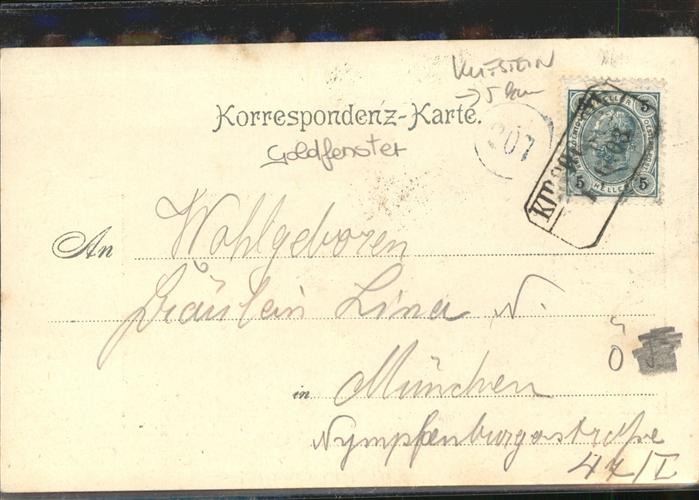 KUFSTEIN
→ 5 km
Korrespondenz-Karte.
Goldfenster
207
5 HELLER 5
5 HELLER 5
An Wohlgeboren
Fräulein Lina N.
in München
Nymphenburgerstraße
47/I